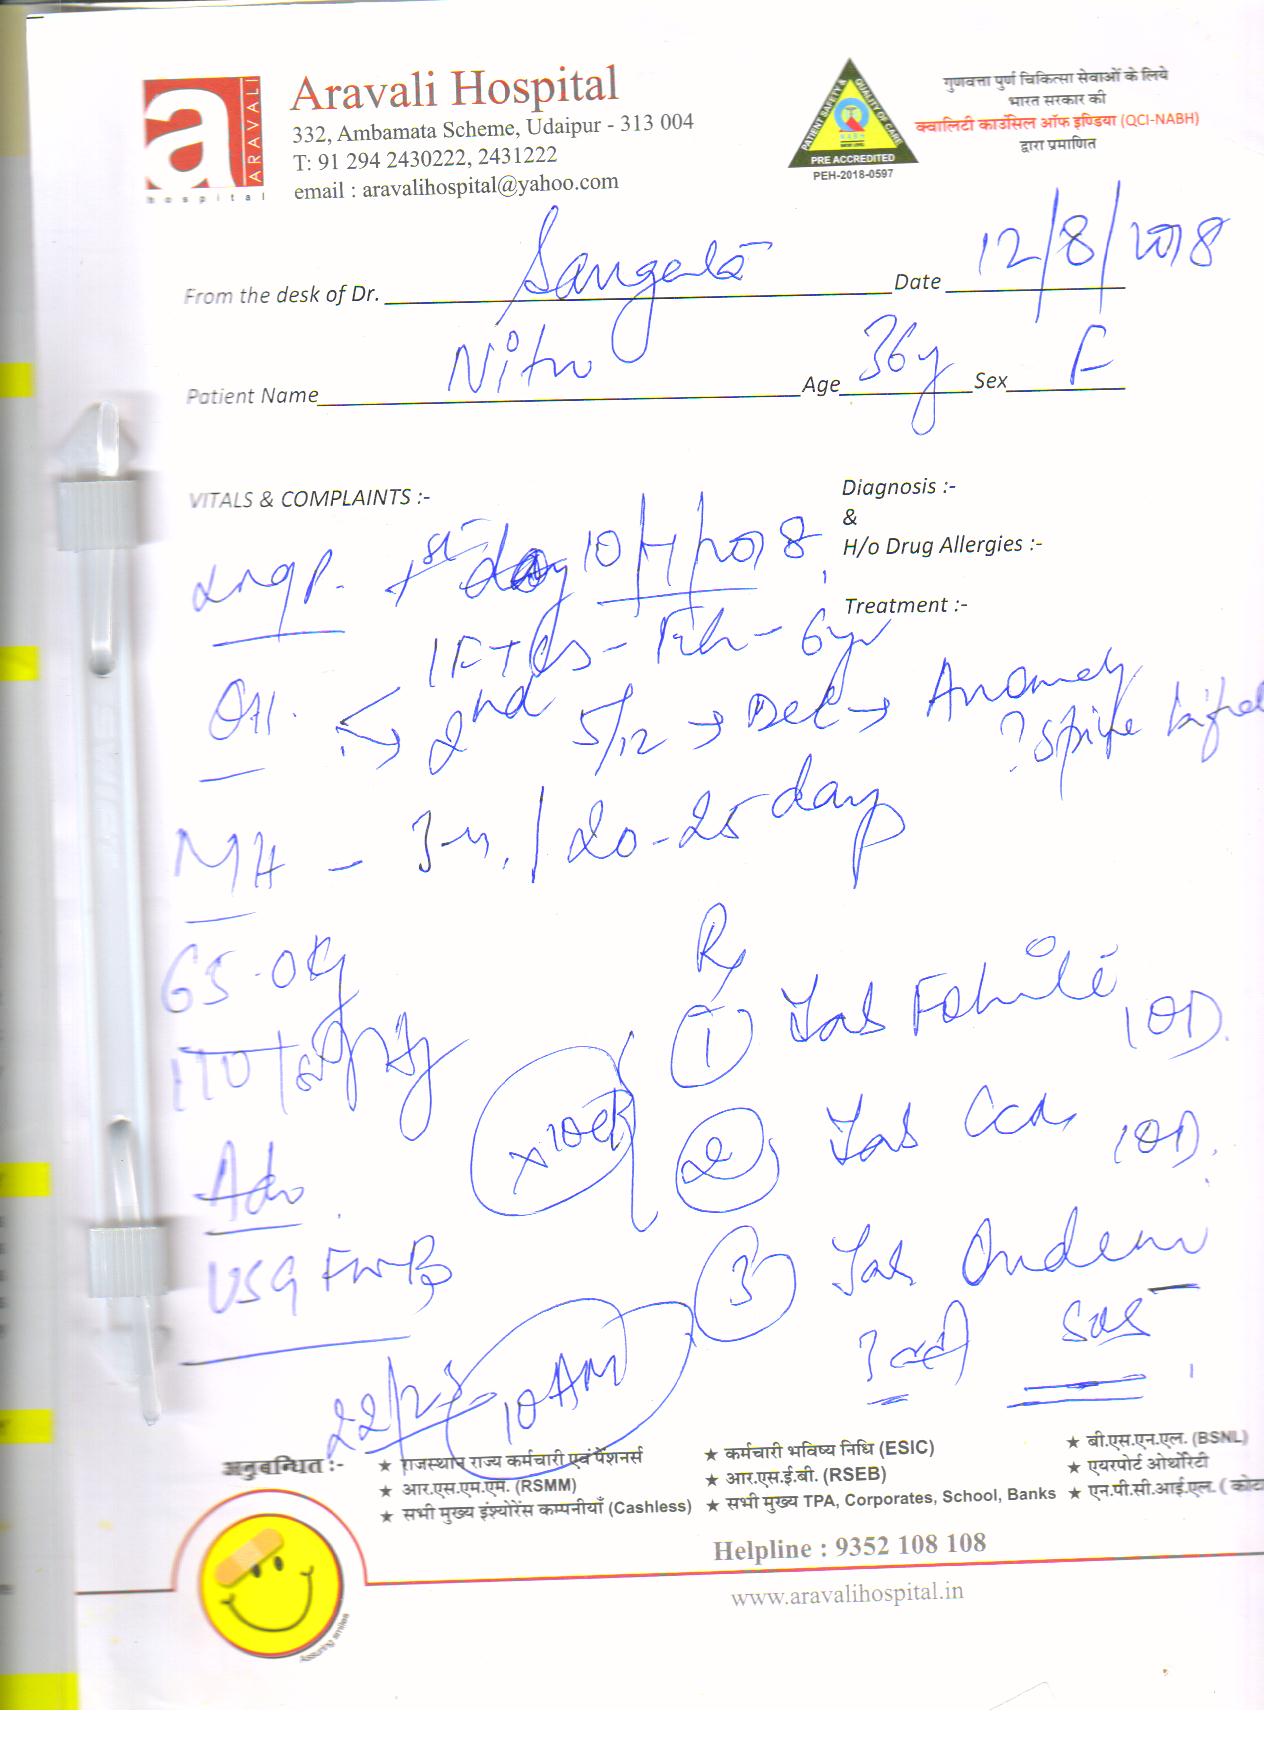 ARAVALI
a
hospital
Aravali Hospital
332, Ambamata Scheme, Udaipur - 313 004
T: 91 294 2430222, 2431222
email : aravalihospital@yahoo.com
PATIENT SAFETY & QUALITY OF CARE
NABH
PRE ACCREDITED
PEH-2018-0597
गुणवत्ता पुर्ण चिकित्सा सेवाओं के लिये
भारत सरकार की
क्वालिटी काउंसिल ऑफ इण्डिया (QCI-NABH)
द्वारा प्रमाणित
From the desk of Dr. Sangeeta Date 12/8/2018
Patient Name Nitu Age 36y Sex F
VITALS & COMPLAINTS :-
Diagnosis :-
&
H/o Drug Allergies :-
Treatment :-
1st day 10/7/2018
OH. 6yr
2nd 5/12 → D&E → Anomaly
? Spine bifida
MH - 3-4. / 20-25 days
GS-OK
Rx
1 Tab 1OD.
Adv. 2 Tab 1OD.
USG FWB 3 Tab Ondem
SOS
10AM
अनुबन्धित :-
★ राजस्थान राज्य कर्मचारी एवं पेंशनर्स
★ आर.एस.एम.एम. (RSMM)
★ सभी मुख्य इंश्योरेंस कम्पनीयाँ (Cashless)
★ कर्मचारी भविष्य निधि (ESIC)
★ आर.एस.ई.बी. (RSEB)
★ सभी मुख्य TPA, Corporates, School, Banks
★ बी.एस.एन.एल. (BSNL)
★ एयरपोर्ट ओथॉरिटी
★ एन.पी.सी.आई.एल. ( कोटा
Helpline : 9352 108 108
www.aravalihospital.in
Assuring smiles